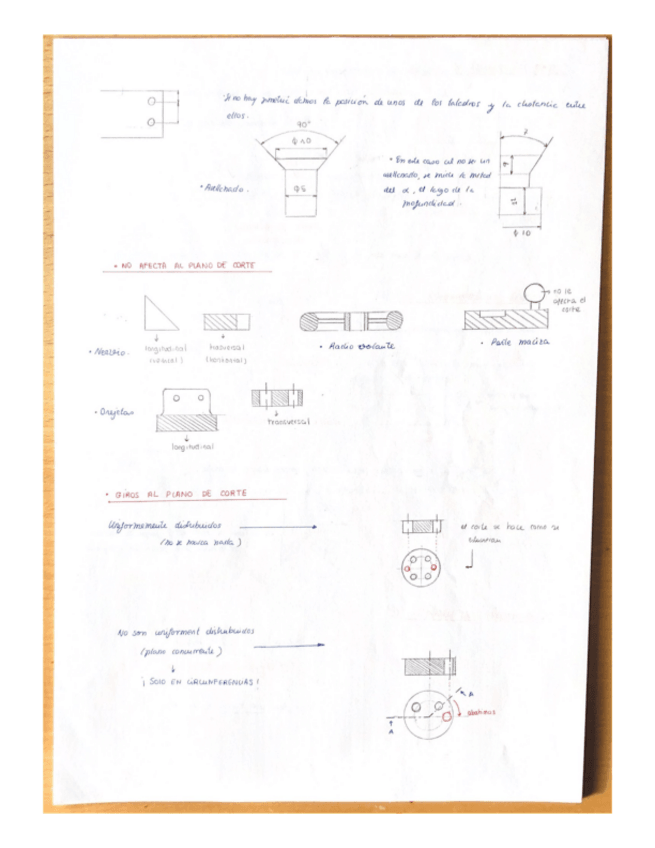 Si no hay simetría damos la posición de unos de los taladros y la distancia entre
ellos.
90°
φ 10
φ 5
• Avellanado.
• En este caso al no ser un
avellanado, se mide la mitad
del α, el largo de la
profundidad.
15
φ 10
• NO AFECTA AL PLANO DE CORTE
• Nervio.
longitudinal
(vertical)
trasversal
(horizontal)
• Radio volante
no le
afecta el
corte
• Parte maciza
• Orejetas
longitudinal
transversal
• GIROS AL PLANO DE CORTE
Uniformemente distribuidos
(no se marca nada)
el corte se hace como si
estuvieran
No son uniforment distribuidos
(plano concurrente)
¡ SOLO EN CIRCUNFERENCIAS !
A
abatimos
A